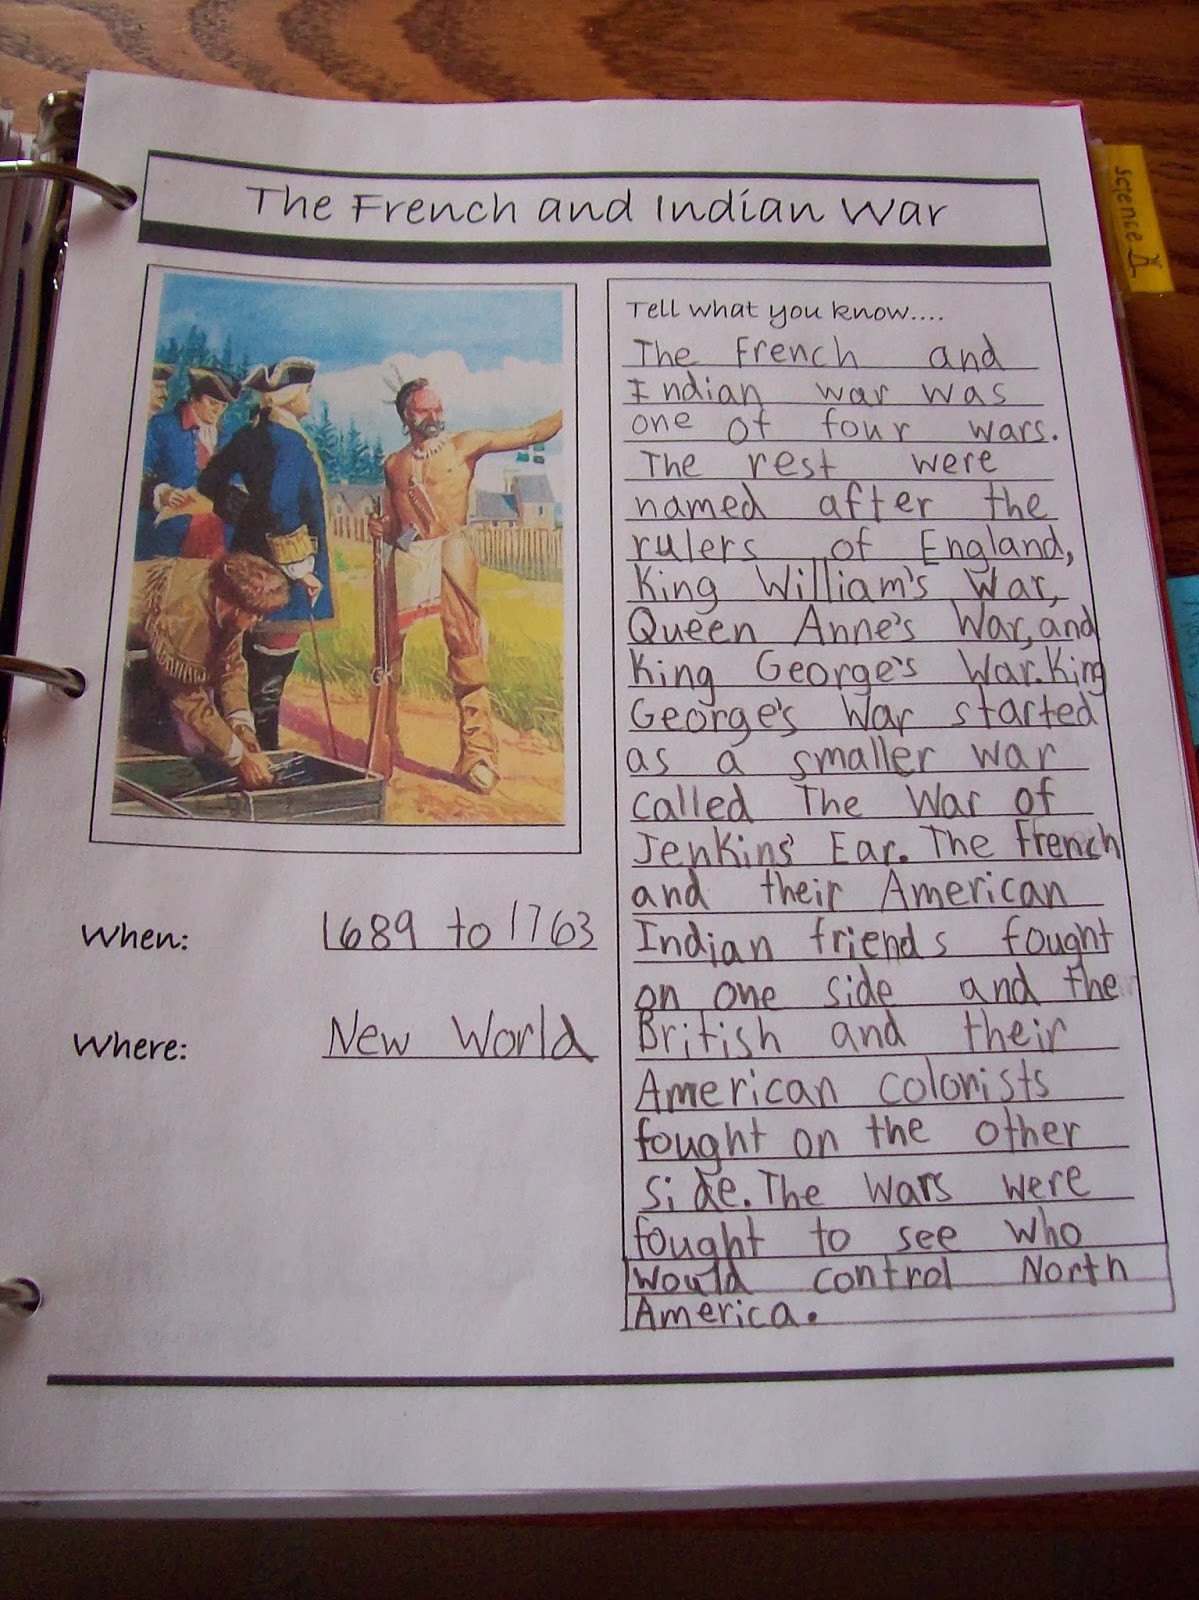 The French and Indian War
Science
Tell what you know....
The French and
Indian war was
one of four wars.
The rest were
named after the
rulers of England,
King William's War,
Queen Anne's War, and
King George's War. King
George's War started
as a smaller war
called The War of
Jenkins' Ear. The French
and their American
Indian friends fought
on one side and the
British and their
American colonists
fought on the other
side. The wars were
fought to see who
would control North
America.
When: 1689 to 1763
Where: New World